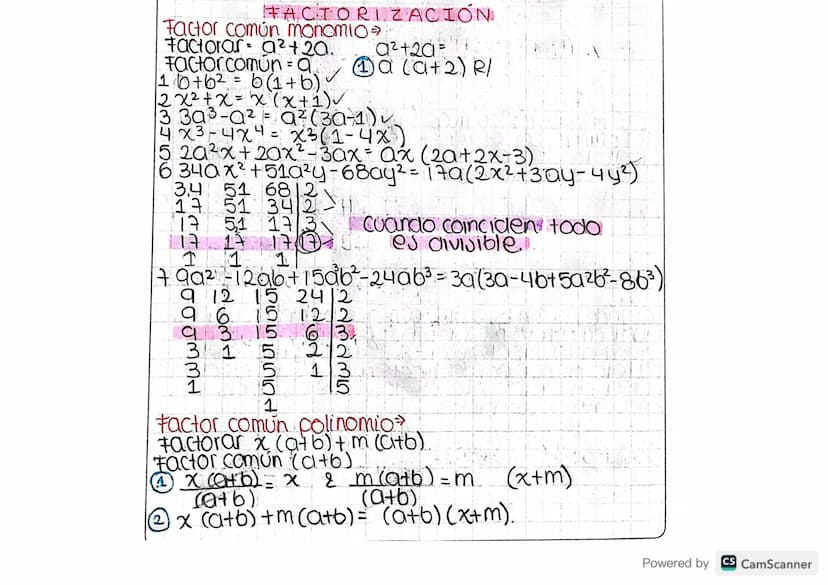 FACTORIZACIÓN
Factor común monomio⇒
Factorar = a²+2a. a²+2a=
Factor comun = a ① a (a+2) R/
1 b+b² = b(1+b) ✓
2 x²+x = x (x+1) ✓
3 3a³-a² = a²(3a-1) ✓
4 x³-4x⁴ = x³(1-4x)
5 2a²x+2ax²-3ax = ax (2a+2x-3)
6 34ax²+51a²y-68ay² = 17a(2x²+3ay-4y²)
34 51 68 | 2
17 51 34 | 2
17 51 17 | 3 cuando coinciden todo
17 17 17 | 17 es divisible.
1 1 1
7 9a²-12ab+15a³b²-24ab³ = 3a(3a-4b+5a²b²-8b³)
9 12 15 24 | 2
9 6 15 12 | 2
9 3 15 6 | 3
3 1 5 2 | 2
3 5 1 | 3
1 5 | 5
1
Factor común polinomio⇒
Factorar x (a+b) + m (a+b)
Factor común (a+b)
① x (a+b)/(a+b) = x & m (a+b)/(a+b) = m (x+m)
② x (a+b) + m (a+b) = (a+b) (x+m).
Powered by CS CamScanner